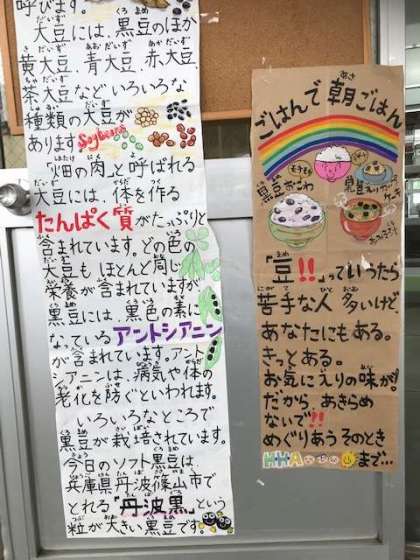 呼びます。
大豆には、黒豆のほか
黄大豆、青大豆、赤大豆、
茶大豆などいろいろな
種類の大豆が
あります。Soybeans
「畑の肉」と呼ばれる
大豆には、体を作る
たんぱく質がたっぷりと
含まれています。どの色の
大豆もほとんど同じ
栄養が含まれていますが
黒豆には、黒色の素に
なっているアントシアニン
が含まれています。アント
シアニンは、病気や体の
老化を防ぐといわれます。
いろいろなところで
黒豆が栽培されています。
今日のソフト黒豆は、
兵庫県丹波篠山市で
とれる「丹波黒」という
粒が大きい黒豆です。
ごはんで朝ごはん
黒豆おこわ
「豆!!」っていうたら
苦手な人 多いけど、
あなたにもある。
きっとある。
お気にえりの味が。
だから、あきらめ
ないで!!
めぐりあう そのとき
まで…